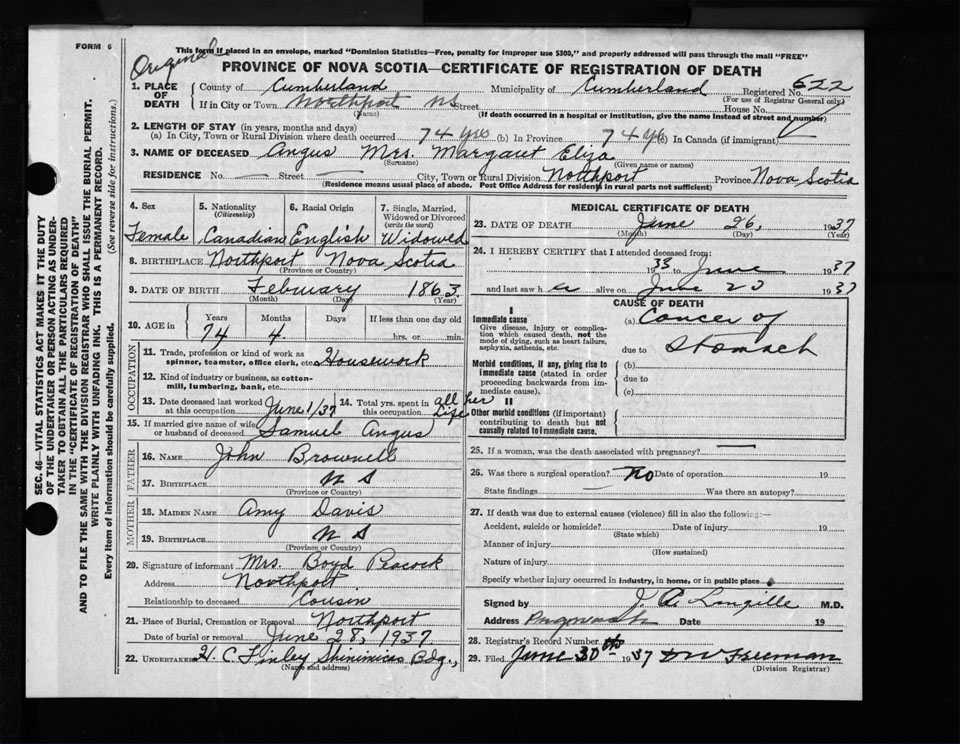 FORM 6
This form if placed in an envelope, marked "Dominion Statistics—Free, penalty for improper use $300," and properly addressed will pass through the mail "FREE"
Original
PROVINCE OF NOVA SCOTIA—CERTIFICATE OF REGISTRATION OF DEATH
1. PLACE OF DEATH
County of Cumberland Municipality of Cumberland Registered No. 622
(For use of Registrar General only)
If in City or Town Northport NS Street House No.
(Name)
(If death occurred in a hospital or institution, give the name instead of street and number)
2. LENGTH OF STAY (in years, months and days)
(a) In City, Town or Rural Division where death occurred 74 yrs (b) In Province 74 yrs (c) In Canada (if immigrant)
3. NAME OF DECEASED Angus Mrs. Margaret Eliza
(Surname) (Given name or names)
RESIDENCE No. — Street — City, Town or Rural Division Northport Province Nova Scotia
(Residence means usual place of abode. Post Office Address for residents in rural parts not sufficient)
4. Sex Female
5. Nationality (Citizenship) Canadian
6. Racial Origin English
7. Single, Married, Widowed or Divorced (write the word) Widowed
8. BIRTHPLACE Northport Nova Scotia
(Province or Country)
9. DATE OF BIRTH February 1863
(Month) (Day) (Year)
10. AGE in Years Months Days If less than one day old
74 4 hrs. or min.
OCCUPATION
11. Trade, profession or kind of work as spinner, teamster, office clerk, etc. Housework
12. Kind of industry or business, as cotton-mill, lumbering, bank, etc.
13. Date deceased last worked at this occupation June 1/37
14. Total yrs. spent in this occupation all her Life
15. If married give name of wife or husband of deceased Samuel Angus
FATHER
16. NAME John Brownell
17. BIRTHPLACE N S
(Province or Country)
MOTHER
18. MAIDEN NAME Amy Davis
19. BIRTHPLACE N S
(Province or Country)
20. Signature of informant Mrs. Boyd Peacock
Address Northport
Relationship to deceased Cousin
21. Place of Burial, Cremation or Removal Northport
Date of burial or removal June 28, 1937
22. UNDERTAKER H. C. Finley Shinimicas Bdg.,
(Name and address)
MEDICAL CERTIFICATE OF DEATH
23. DATE OF DEATH June 26, 1937
(Month) (Day) (Year)
24. I HEREBY CERTIFY that I attended deceased from:
1933 to June 1937
and last saw h er alive on June 23 1937
CAUSE OF DEATH
I
Immediate cause
Give disease, injury or complication which caused death, not the mode of dying, such as heart failure, asphyxia, asthenia, etc.
(a) Cancer of
due to Stomach
Morbid conditions, if any, giving rise to immediate cause (stated in order proceeding backwards from immediate cause).
(b)
due to
(c)
II
Other morbid conditions (if important) contributing to death but not causally related to immediate cause.
25. If a woman, was the death associated with pregnancy? —
26. Was there a surgical operation? No Date of operation 19
State findings — Was there an autopsy?
27. If death was due to external causes (violence) fill in also the following:—
Accident, suicide or homicide? Date of injury 19
(State which)
Manner of injury
(How sustained)
Nature of injury
Specify whether injury occurred in industry, in home, or in public place
Signed by J. A. Langille M.D.
Address Date 19
28. Registrar's Record Number
29. Filed June 30th 1937 Freeman
(Division Registrar)
SEC. 46—VITAL STATISTICS ACT MAKES IT THE DUTY
OF THE UNDERTAKER OR PERSON ACTING AS UNDER-
TAKER TO OBTAIN ALL THE PARTICULARS REQUIRED
IN THE "CERTIFICATE OF REGISTRATION OF DEATH"
AND TO FILE THE SAME WITH THE DIVISION REGISTRAR WHO SHALL ISSUE THE BURIAL PERMIT.
WRITE PLAINLY WITH UNFADING INK. THIS IS A PERMANENT RECORD.
Every item of information should be carefully supplied. (See reverse side for instructions.)